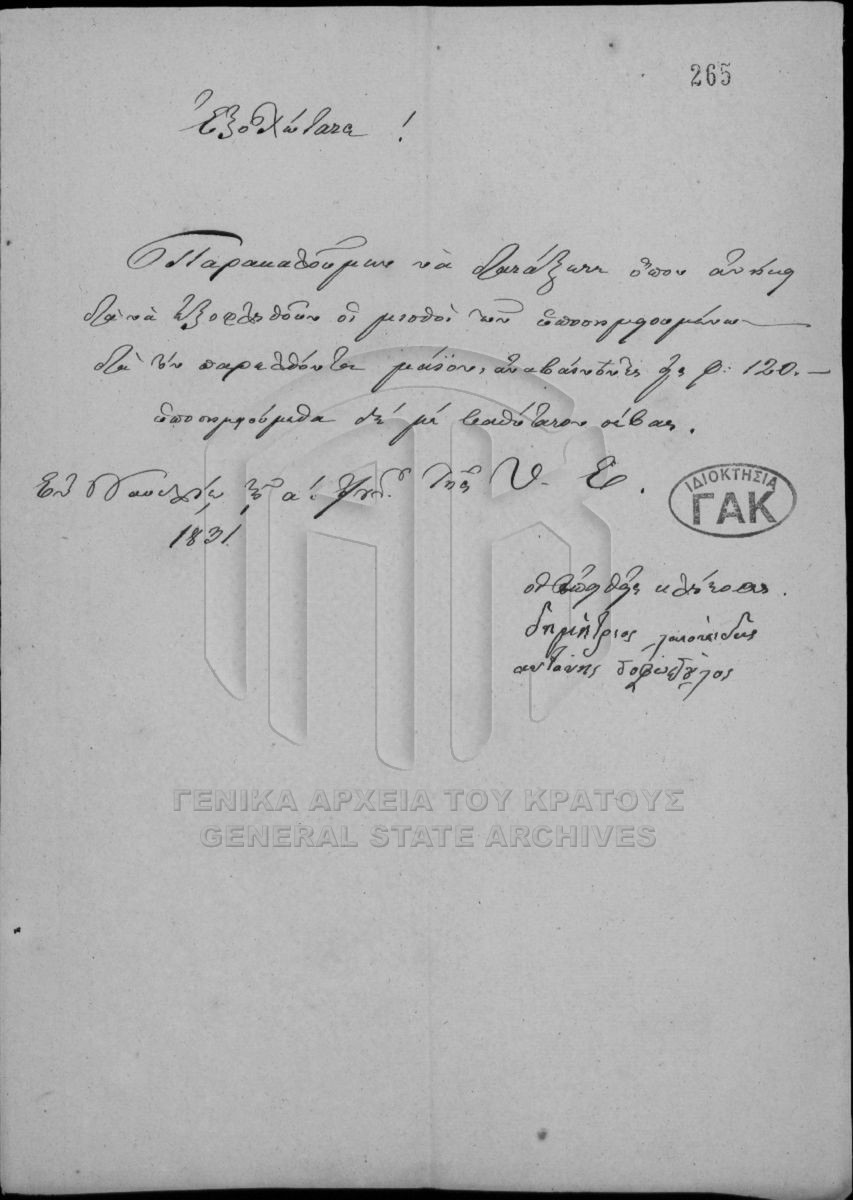 265
Ἐξοχώτατε !
Παρακαλοῦμεν νὰ διατάξητε ὅπου ἀνήκει
διὰ νὰ ἐξοφληθοῦν οἱ μισθοὶ τῶν ὑποσημειουμένων
διὰ τὸν παρελθόντα μάϊον, ἀναβαίνοντες εἰς φ: 120.—
ὑποσημειούμεθα δὲ μὲ βαθύτατον σέβας.
Ἐν Ναυπλίῳ τῇ α: τῆς Υ. Ε.
1831.
ΙΔΙΟΚΤΗΣΙΑ
ΓΑΚ
δημήτριος
ἀντώνης
ΓΕΝΙΚΑ ΑΡΧΕΙΑ ΤΟΥ ΚΡΑΤΟΥΣ
GENERAL STATE ARCHIVES